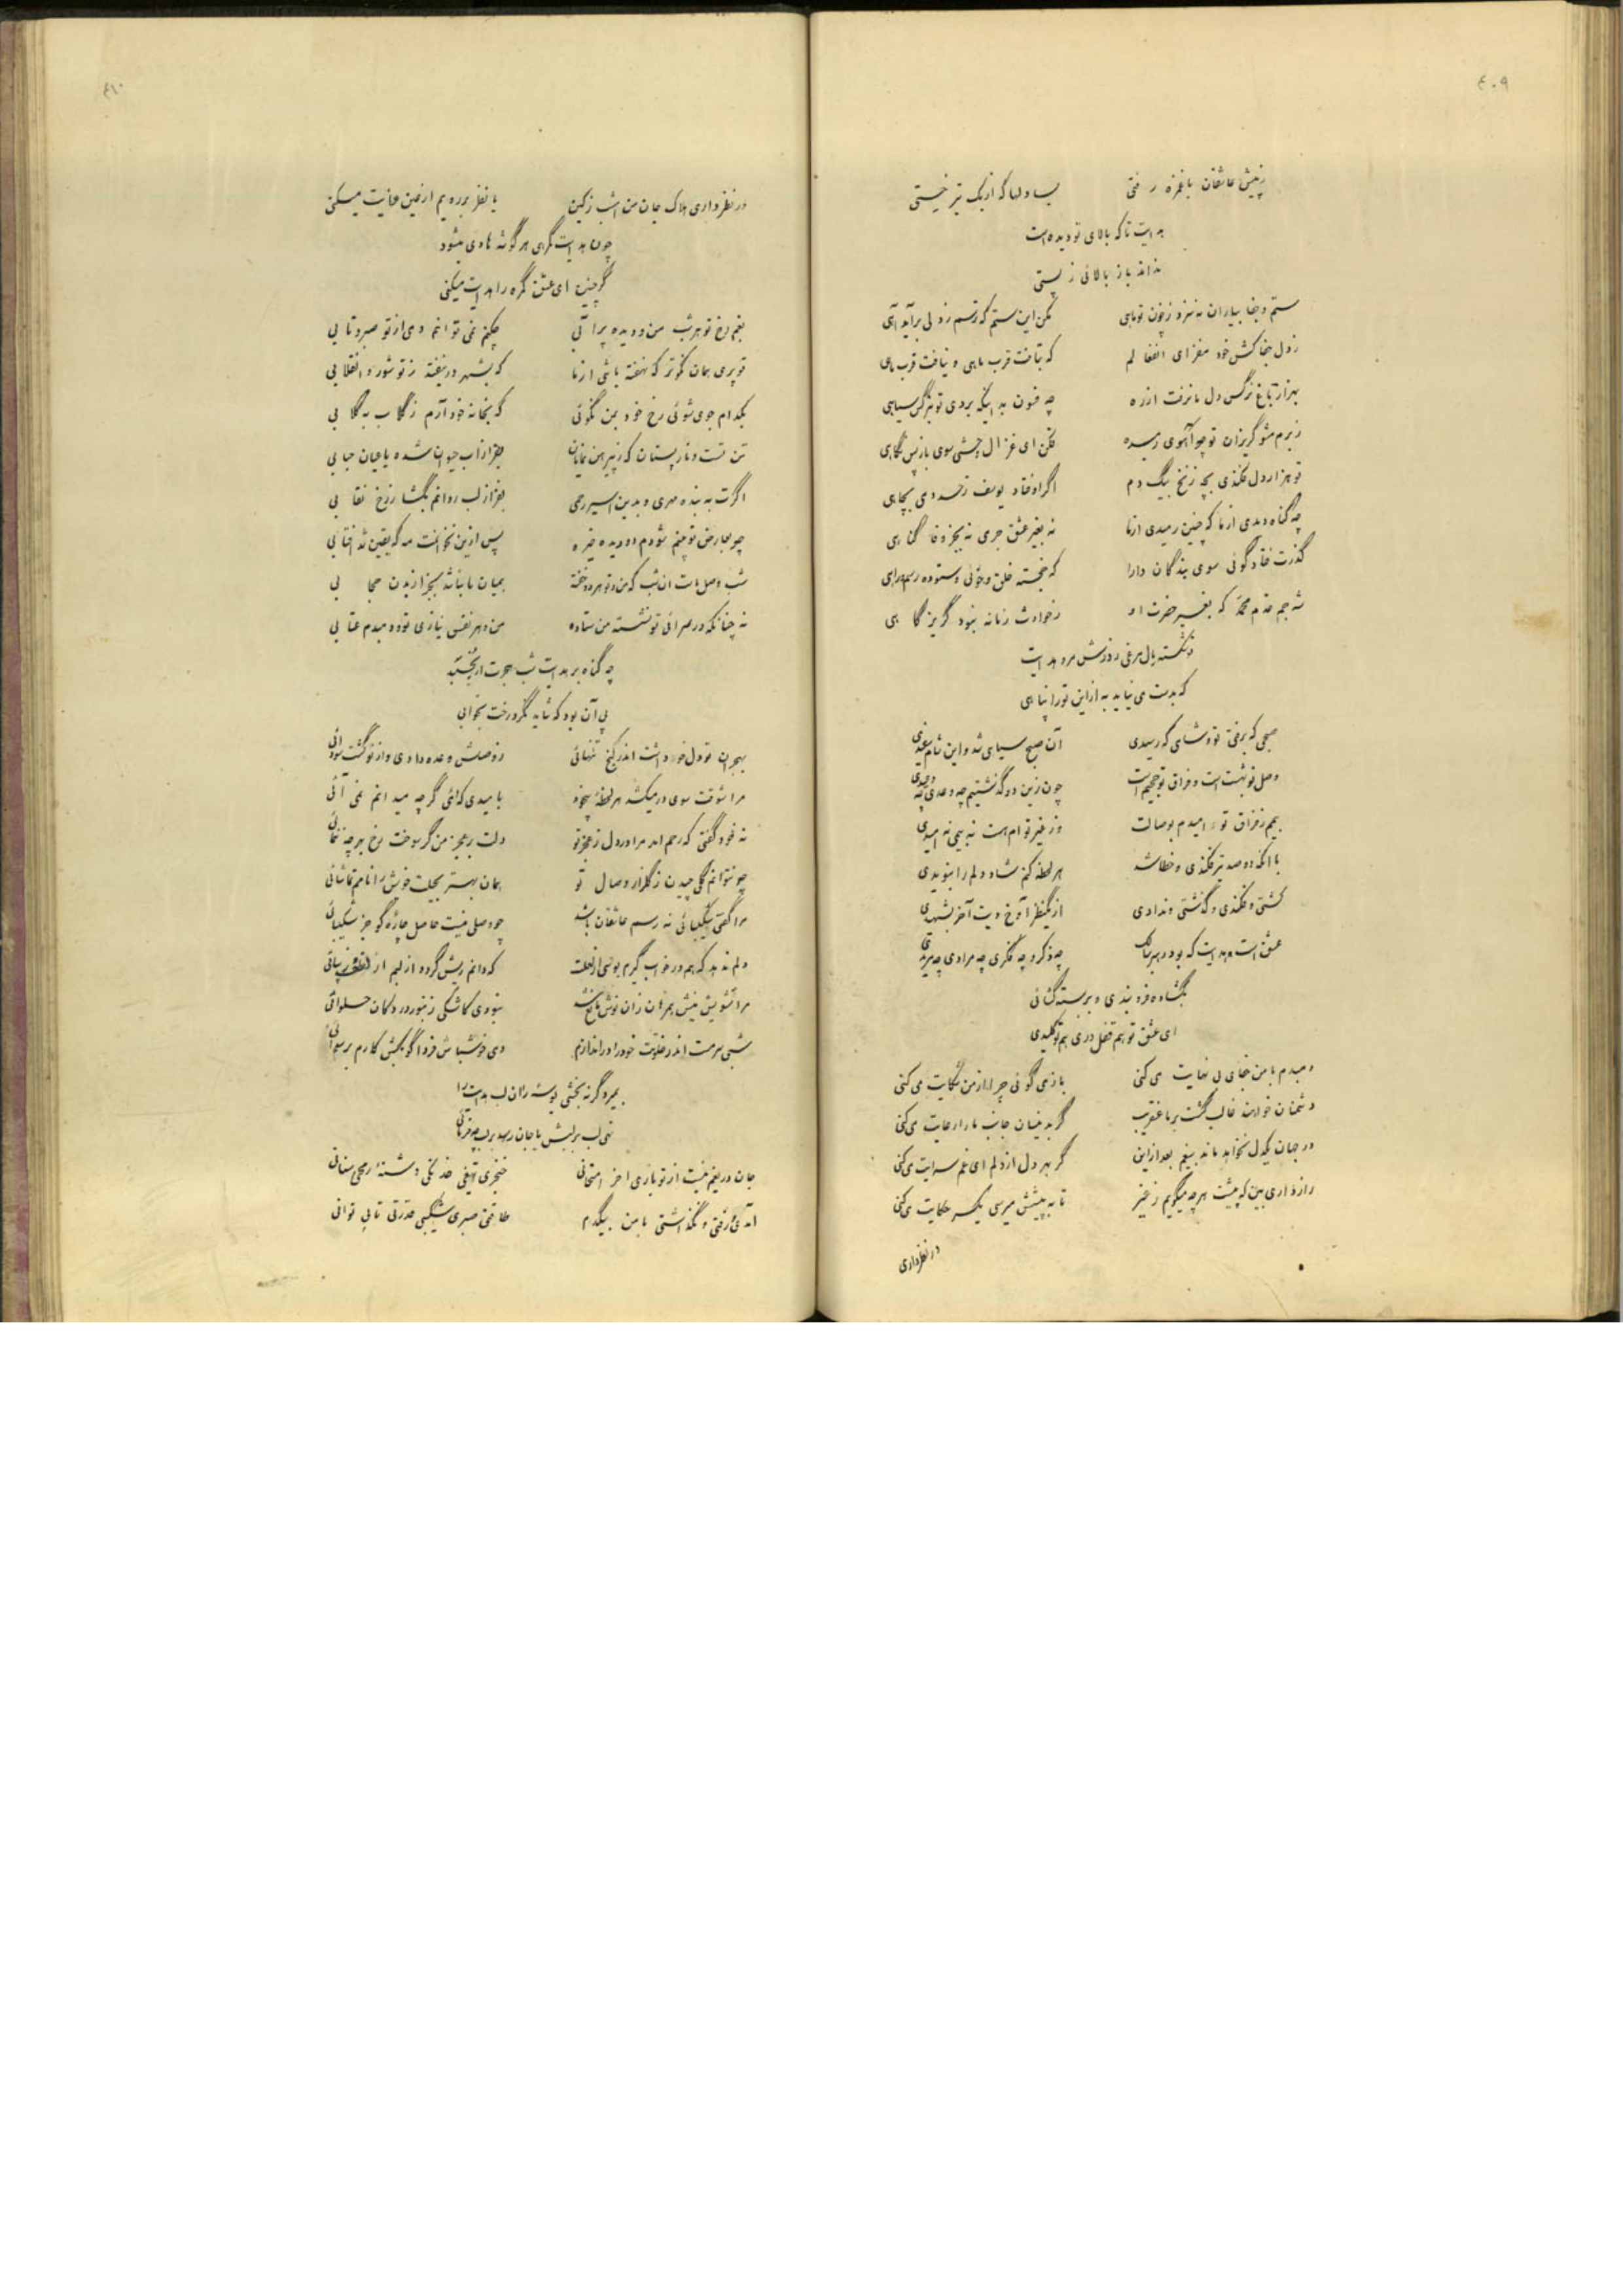 ٤٠٩
ز پیش عاشقان با غمزه رفتی بسا دلها که از یک تیر خستی
هدایت تا که بالای تو دیده است
نداند باز بالائی ز پستی
ستم و جفا بیاران نه سزد ز چون تو ماهی مکن این ستم که ترسم ز دلی برآید آهی
ز دل جفاکش خود مفزای که نیافت قرب ماهی و نیافت قرب ماهی
بهزار باغ نرگس دل ما نرفت از ره چه فسون بد اینکه بردی تو بنرگس سیاهی
ز برم مشو گریزان تو چو آهوی رمیده فکن ای غزال چشمی سوی باز پس نگاهی
تو هزار دل فکندی بچه زنخ بیک دم اگر اوفتاد یوسف ز حسد دمی بچاهی
چه گناه دیدی از ما که چنین رمیدی از ما نه بغیر عشق جرمی نه بجز وفا گناهی
گذرت فتاد گوئی سوی بندگان دارا که خجسته خلق و خوئی و ستوده رسم و راهی
شه جم خدم محمد که بغیر حضرت او ز حوادث زمانه نبود گریزگاهی
بشکسته بال مرغی ز درش مرو هدایت
که بدست می نیاید به از این تو را پناهی
صبحی که برفتی تو و شامی که رسیدی آن صبح سیاهی شد و این شام سفیدی
وصل تو بهشت است و فراق تو جحیم است چون زین دو گذشتیم چه وعدی چه وعیدی
بیم ز فراق تو و امیدم بوصالت وز غیر توام هست نه بیمی نه امیدی
با آنکه دو صد تیر فکندی و خطا شد هر لحظه کنم شاد دلم را بنویدی
کشتی و فکندی و گذشتی و ندادی از یک نظر آوخ دیت آخر بشهیدی
عشق است هدایت که بود رهبر سالک چه ذکر و چه فکری چه مرادی چه مریدی
بگشاده فرو بندی و بربسته گشائی
ای عشق تو هم قفل دری هم تو کلیدی
دمبدم با من جفای بی نهایت می کنی باز می گوئی چرا از من شکایت می کنی
دشمنان خواهند غالب گشت بر ما عنقریب گر بدینسان جانب ما را رعایت می کنی
در جهان یکدل نخواهد ماند بیغم بعد از این گر بهر دل از دلم ای غم سرایت می کنی
رازداری بین که پیشت هر چه میگویم ز غیر تا به پیشش میرسی یکسر حکایت می کنی
در نظر داری
٤١٠
در نظر داری هلاک جان من امشب ز کین یا نظر بر رویم از عین عنایت میکنی
چون هدایت گمرهی هر گوشه هادی میشود
گر چنین ای عشق گمره را هدایت میکنی
بغم رخ تو هر شب من و دیده پر آبی چکنم نمی توانم دمی از تو صبر و تابی
تو پری همان نکوتر که نهفته باشی از ما که بشهر در نیفتد ز تو شور و انقلابی
بکدام جوی شوئی رخ خود بمن نگوئی که بخانه خود آرم ز گلاب به گلابی
تن تست و نار پستان که ز پیرهن نمایان بجز از آب حیوان شده یا عیان حبابی
اگرت به بنده مهری و بدین اسیر رحمی بجز از لب روانم بگشا ز رخ نقابی
چو بعارض تو بینم شودم دو دیده خیره پس از این نخوانمت مه که یقین شد آفتابی
شب وصل بات آن شب که من و تو هر دو خفته بمیان ما نباشد بجز از بدن حجابی
نه چنانکه در سرائی تو نشسته من ستاده من و هر نفس نیازی تو و دمبدم عتابی
چه گناه بر هدایت شب هجرت ار بخسبد
پی آن بود که شاید نگرد رخت بخوابی
بهجران تو دل خو داشت اندر کنج تنهائی ز وصلش وعده دادی و از تو گشت سودائی
مرا شوقت سوی در میکشد هر لحظهٔ بیخود بامیدی که آئی گرچه میدانم نمی آئی
نه خود گفتی که رحم آمد مرا در دل ز عجز تو دلت بر عجز من گر سوخت رخ بهر چه ننمائی
چو نتوانم گلی چیدن ز گلزار وصال تو همان بهتر بخلت خویش را نامم تماشائی
مرا گفتی شکیبائی نه رسم عاشقان باشد چو وصلی نیست حاصل چاره گو جز شکیبائی
دلم ندهد که هم در خواب گیرم بوسی از لعلت که دانم ریش گردد از لبم از
مرا تشویش نیش پهره‌بان زان نوش مانع شد نبودی کاشکی زنبور در دکان حلوائی
شبی سرمست اندر خلوت خود را دراندازم وی خوش باش فردا گو بکش کارم برسوائی
بمیرد گر نه بخشی بوسه زان لب هدایت را
نهی لب بر لبش یا جان رسد بر لب چه فرمائی
جان دریغم نیست از تو باری آخر امتحانی خنجری تیغی خدنگی دشنهٔ رمحی سنانی
آمدی و رفتی و نگذاشتی با من بیکدم طاقتی صبری شکیبی قدرتی تابی توانی